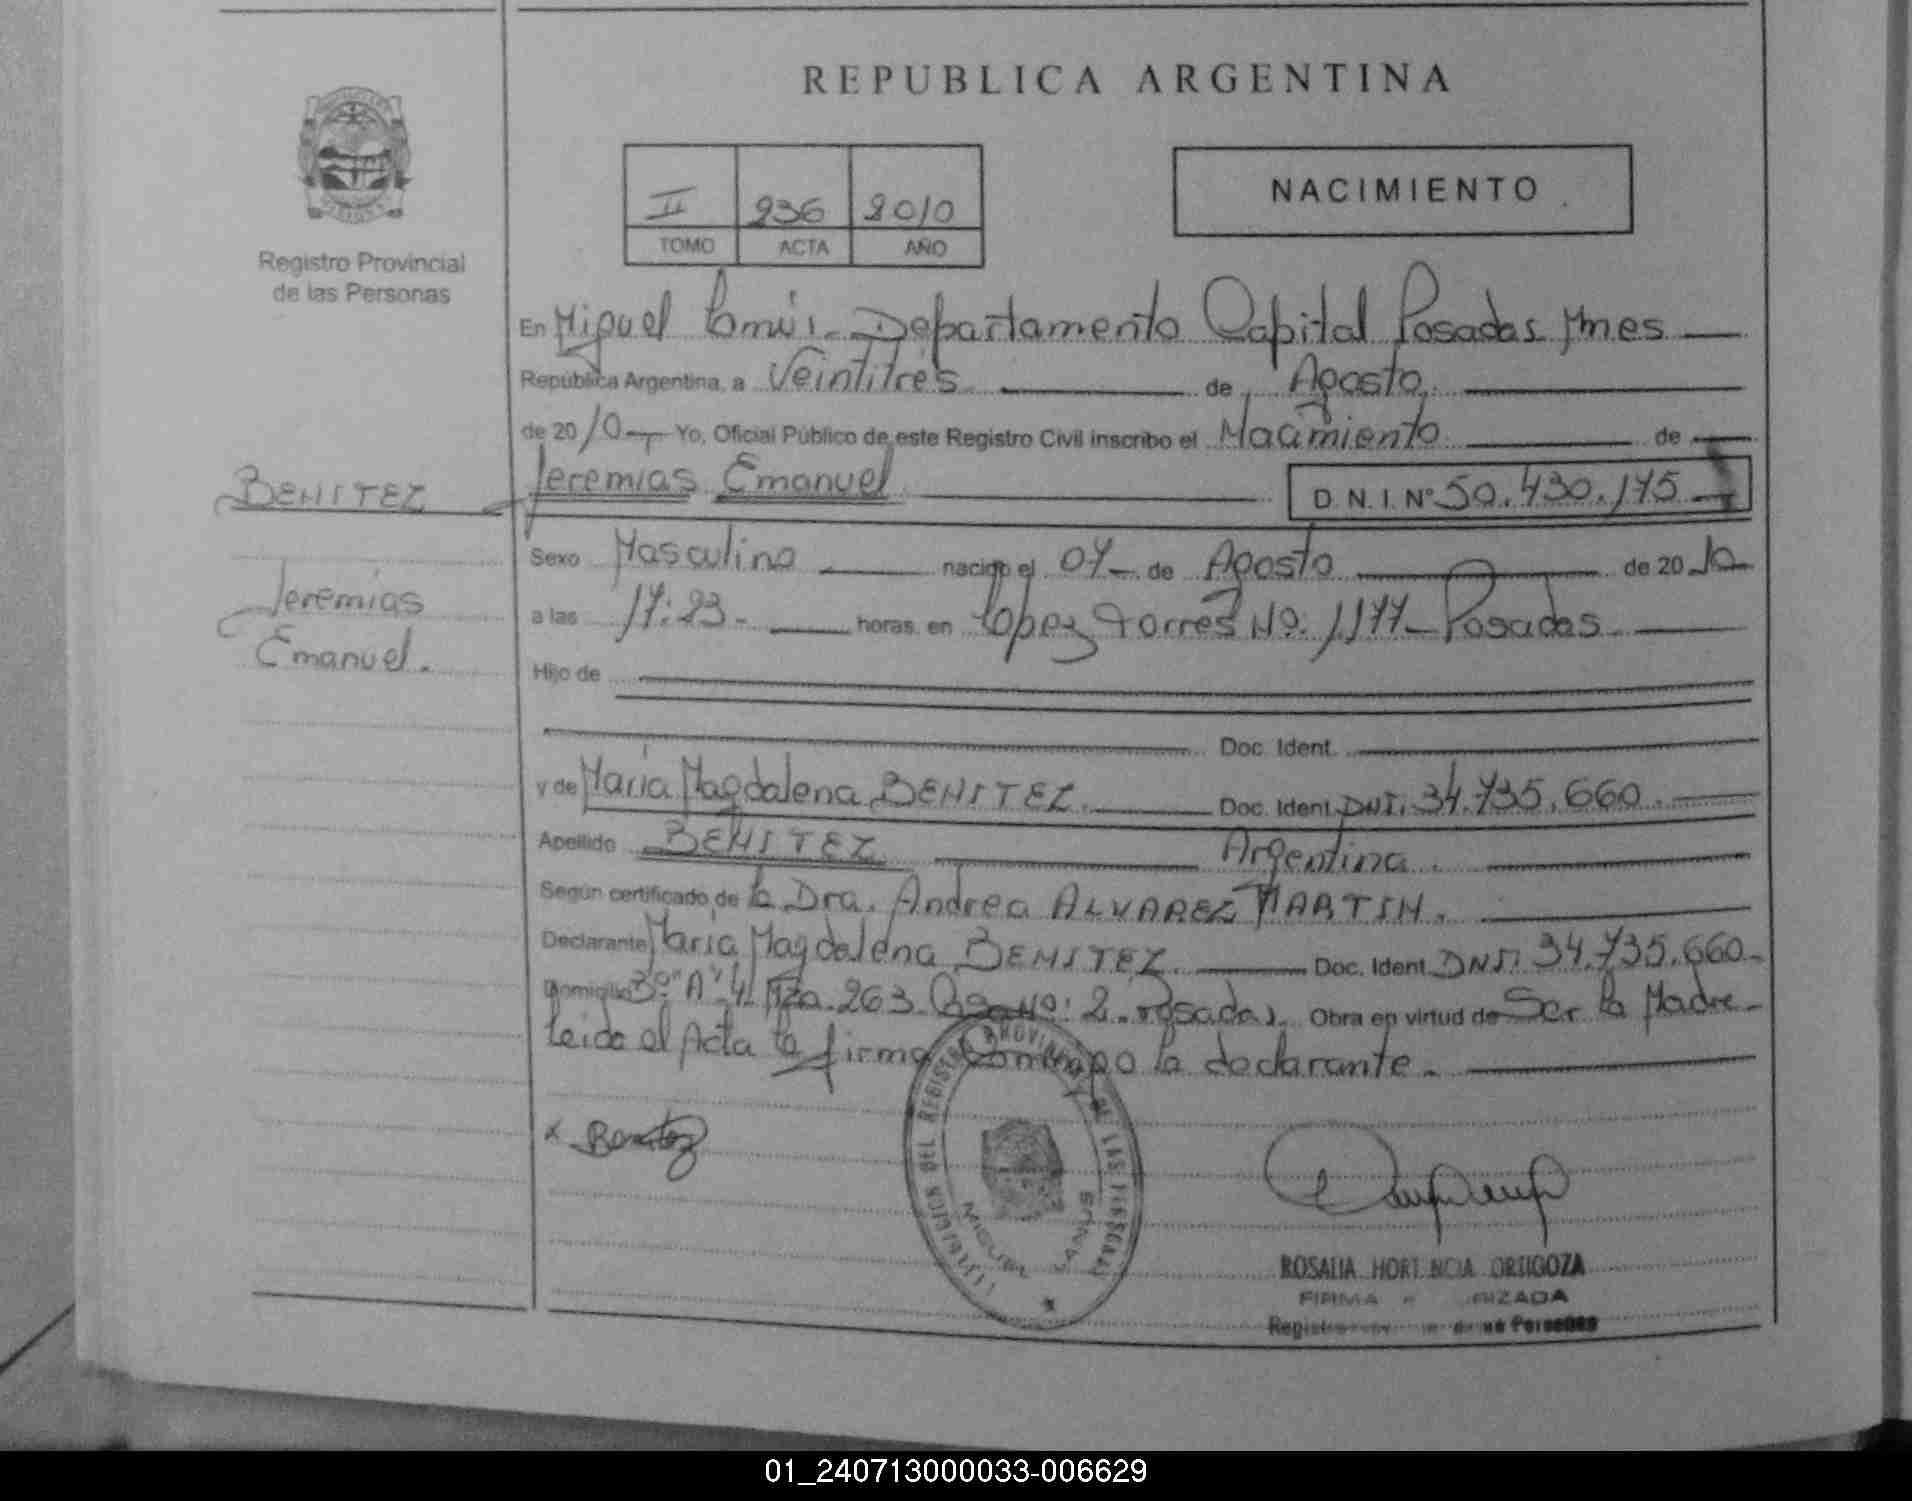 REPUBLICA ARGENTINA
II 236 2010
TOMO ACTA AÑO
NACIMIENTO
Registro Provincial
de las Personas
En Miguel Lanús - Departamento Capital Posadas Mnes
República Argentina, a Veintitrés de Agosto
de 2010 Yo, Oficial Público de este Registro Civil inscribo el Nacimiento de
BENITEZ
Jeremias Emanuel D.N.I. Nº 50.430.175
Sexo Masculino nacido el 07 de Agosto de 2010
Jeremias
Emanuel.
a las 17:23 - horas, en López Torres Nº. 1177 - Posadas
Hijo de
Doc. Ident.
y de María Magdalena BENITEZ Doc. Ident. DNI. 34.735.660.
Apellido BENITEZ Argentina.
Según certificado de la Dra. Andrea ALVAREZ MARTIN.
Declarante María Magdalena BENITEZ Doc. Ident. DNI. 34.735.660-
Domicilio 3º "A" 4 Mza. 263 Nº: 2. Posadas. Obra en virtud de Ser la Madre-
leida el Acta la firma Conmigo la declarante.
x Benitez
DEL REGISTRO PROVINCIAL DE LAS PERSONAS
MIGUEL LANUS
ROSALIA HORTENCIA ORTIGOZA
FIRMA
de las Personas
01_240713000033-006629